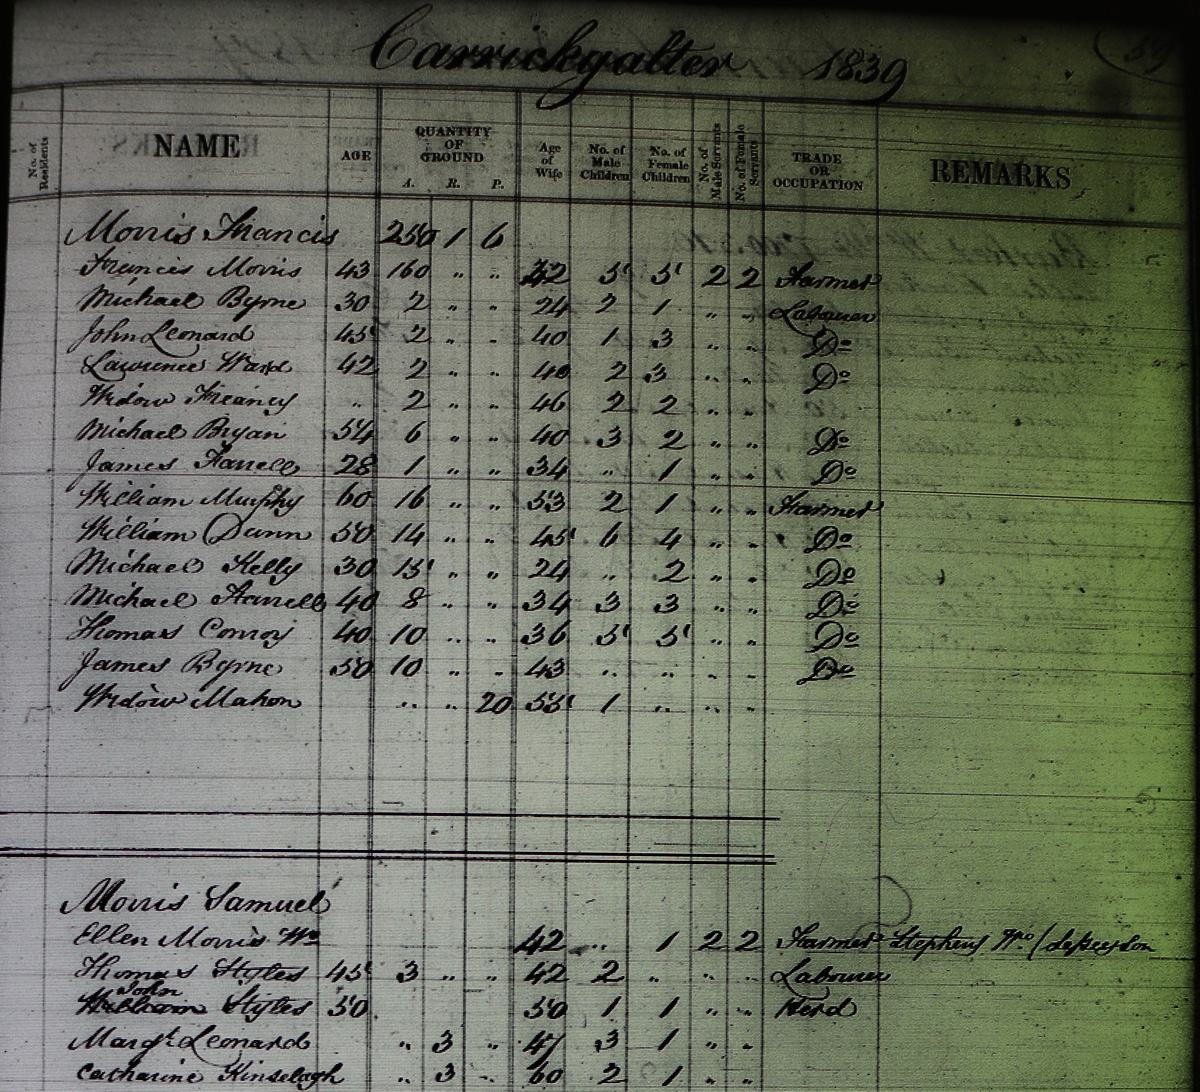 Carrickgalter 1839
No. of Residents NAME AGE QUANTITY OF GROUND A. R. P. Age of Wife No. of Male Children No. of Female Children No. of Male Servants No. of Female Servants TRADE OR OCCUPATION REMARKS
Morris Francis 250 1 6
Francis Morris 43 160 " " 42 5 5 2 2 Farmer
Michael Byrne 30 2 " " 24 2 1 " " Labourer
John Leonard 45 2 " " 40 1 3 " " Do
Lawrence Ward 42 2 " " 40 2 3 " " Do
Widow Freaney " 2 " " 46 2 2 " "
Michael Bryan 54 6 " " 40 3 2 " " Do
James Farrell 28 1 " " 34 " 1 " " Do
William Murphy 60 16 " " 53 2 1 " " Farmer
William Dunn 50 14 " " 45 6 4 " " Do
Michael Kelly 30 15 " " 24 " 2 " " Do
Michael Farrell 40 8 " " 34 3 3 " " Do
Thomas Conroy 40 10 " " 36 5 5 " " Do
James Byrne 50 10 " " 43 " " " " Do
Widow Mahon " " 20 55 1 " " "
Morris Samuel
Ellen Morris Wo 42 " 1 2 2 Farmer Stephens Wo
Thomas Styles 45 3 " " 42 2 " " " Labourer
John
William Styles 50 50 1 1 " " Herd
Margt. Leonard " 3 " 47 3 1 " "
Catharine Kinselagh " 3 " 60 2 1 " "